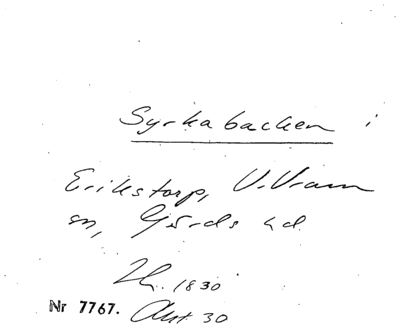 Syrkabacken i
Erikstorp, V. Vram
sn, Gärds hd.
Th. 1830
Nr 7767. Akt 30